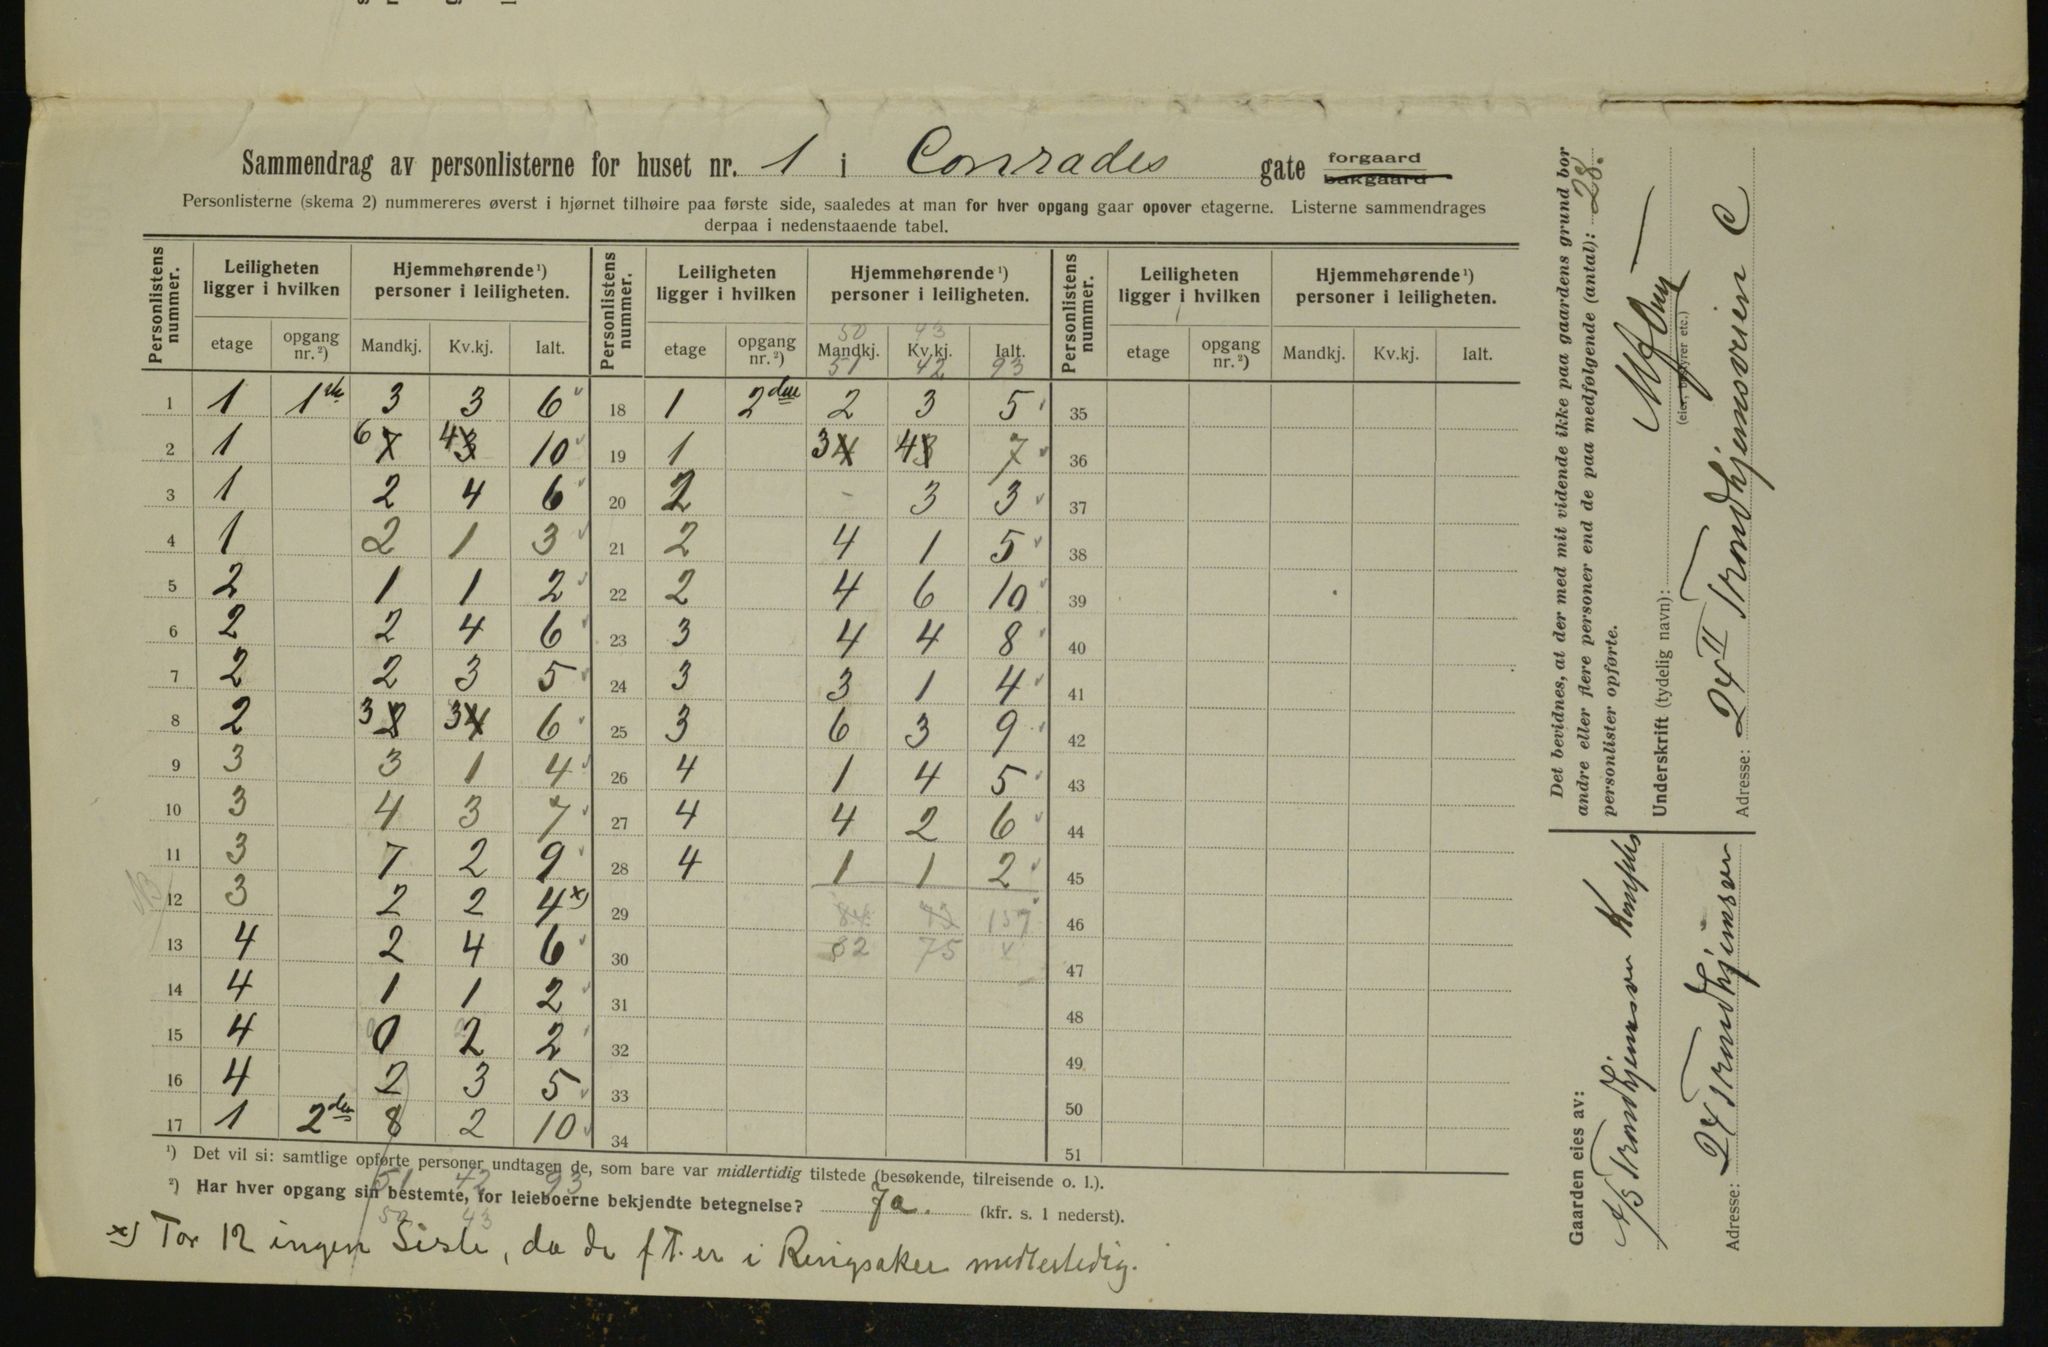 Sammendrag av personlisterne for huset nr. 1 i Conrades gate forgaard bakgaard
Personlisterne (skema 2) nummereres øverst i hjørnet tilhøire paa første side, saaledes at man for hver opgang gaar opover etagerne. Listerne sammendrages
derpaa i nedenstaaende tabel.
Personlistens nummer. Leiligheten ligger i hvilken Hjemmehørende ¹) personer i leiligheten. Personlistens nummer. Leiligheten ligger i hvilken Hjemmehørende ¹) personer i leiligheten. Personlistens nummer. Leiligheten ligger i hvilken Hjemmehørende ¹) personer i leiligheten.
50 43
etage opgang nr. ²) Mandkj. Kv.kj. Ialt. etage opgang nr. ²) Mandkj. Kv.kj. Ialt. etage opgang nr. ²) Mandkj. Kv.kj. Ialt.
51 42 93
1 1 1ste 3 3 6 18 1 2den 2 3 5 35
2 1 6 7 4 3 10 19 1 3 4 4 3 7 36
3 1 2 4 6 20 2 - 3 3 37
4 1 2 1 3 21 2 4 1 5 38
5 2 1 1 2 22 2 4 6 10 39
6 2 2 4 6 23 3 4 4 8 40
7 2 2 3 5 24 3 3 1 4 41
8 2 3 2 3 4 6 25 3 6 3 9 42
9 3 3 1 4 26 4 1 4 5 43
10 3 4 3 7 27 4 4 2 6 44
11 3 7 2 9 28 4 1 1 2 45
12 3 2 2 4 x) 29 84 73 157 46
13 4 2 4 6 30 82 75 47
14 4 1 1 2 31 48
15 4 0 2 2 32 49
16 4 2 3 5 33 50
17 1 2den 8 2 10 34 51
¹) Det vil si: samtlige opførte personer undtagen de, som bare var midlertidig tilstede (besøkende, tilreisende o. l.).
51 42 93
²) Har hver opgang sin bestemte, for leieboerne bekjendte betegnelse? Ja. (kfr. s. 1 nederst).
50 43
x) For 12 ingen Liste, da de f.T. er i Ringsaker midlertidig.
Det bevidnes, at der med mit vidende ikke paa gaardens grund bor
andre eller flere personer end de paa medfølgende (antal): 28.
personlister opførte.
Underskrift (tydelig navn):
(eier, bestyrer etc.)
Adresse: 24 II Trondhjemsveien C
Gaarden eies av:
A/S Trondhjemsvn
Adresse: 24 Trondhjemsvn